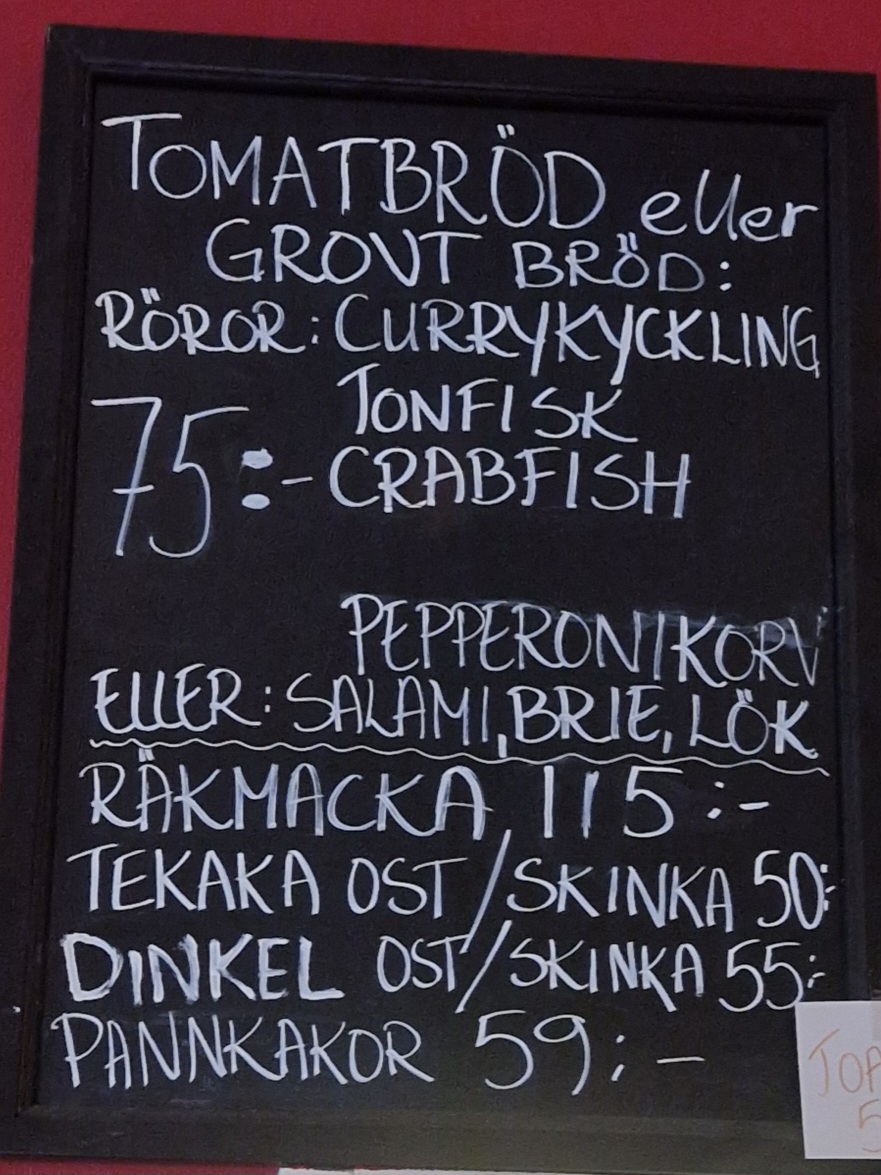 TOMATBRÖD eller
GROVT BRÖD:
RÖROR: CURRYKYCKLING
TONFISK
75:- CRABFISH
PEPPERONIKORV
ELLER: SALAMI, BRIE, LÖK
RÄKMACKA 115:-
TEKAKA OST/SKINKA 50:-
DINKEL OST/SKINKA 55:-
PANNKAKOR 59:-